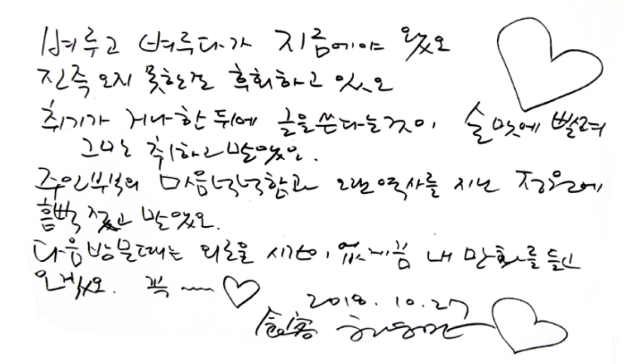 벼루고 벼루다가 지금에야 왔오
진즉 오지 못한걸 후회하고 있오
취기가 거나한 뒤에 글을 쓴다는것이 술맛에 빨려
그만 취하고 말았오.
주인부부의 마음넉넉함과 오랜역사를 지닌 정원에
흠뻑 젖고 말았오.
다음방문때는 외로울 시간이 없게끔 내 만화를 들고
오겠오. 꼭
2018. 10.27